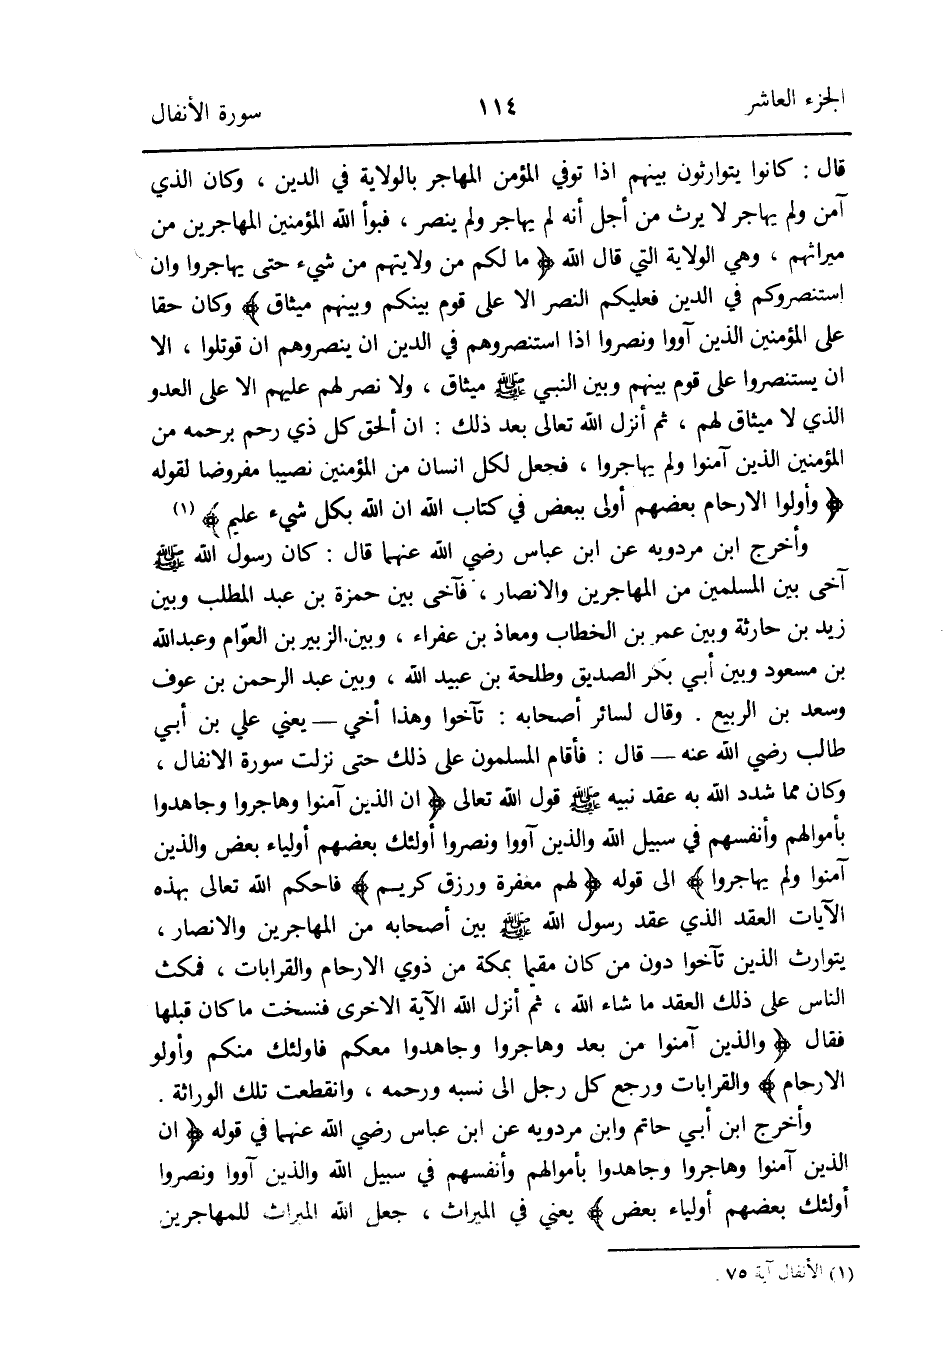 الجزء العاشر ١١٤ سورة الأنفال
قال : كانوا يتوارثون بينهم اذا توفي المؤمن المهاجر بالولاية في الدين ، وكان الذي
آمن ولم يهاجر لا يرث من أجل أنه لم يهاجر ولم ينصر ، فبوأ الله المؤمنين المهاجرين من
ميراثهم ، وهي الولاية التي قال الله ﴿ ما لكم من ولايتهم من شيء حتى يهاجروا وان
استنصروكم في الدين فعليكم النصر الا على قوم بينكم وبينهم ميثاق ﴾ وكان حقا
على المؤمنين الذين آووا ونصروا اذا استنصروهم في الدين ان ينصروهم ان قوتلوا ، الا
ان يستنصروا على قوم بينهم وبين النبي ﷺ ميثاق ، ولا نصر لهم عليهم الا على العدو
الذي لا ميثاق لهم ، ثم أنزل الله تعالى بعد ذلك : ان ألحق كل ذي رحم برحمه من
المؤمنين الذين آمنوا ولم يهاجروا ، فجعل لكل انسان من المؤمنين نصيبا مفروضا لقوله
﴿ وأولوا الارحام بعضهم أولى ببعض في كتاب الله ان الله بكل شيء عليم ﴾ (١)
وأخرج ابن مردويه عن ابن عباس رضي الله عنهما قال : كان رسول الله ﷺ
آخى بين المسلمين من المهاجرين والانصار ، فآخى بين حمزة بن عبد المطلب وبين
زيد بن حارثة وبين عمر بن الخطاب ومعاذ بن عفراء ، وبين الزبير بن العوّام وعبدالله
بن مسعود وبين أبي بكر الصديق وطلحة بن عبيد الله ، وبين عبد الرحمن بن عوف
وسعد بن الربيع . وقال لسائر أصحابه : تآخوا وهذا أخي — يعني علي بن أبي
طالب رضي الله عنه — قال : فأقام المسلمون على ذلك حتى نزلت سورة الانفال ،
وكان مما شدد الله به عقد نبيه ﷺ قول الله تعالى ﴿ ان الذين آمنوا وهاجروا وجاهدوا
بأموالهم وأنفسهم في سبيل الله والذين آووا ونصروا أولئك بعضهم أولياء بعض والذين
آمنوا ولم يهاجروا ﴾ الى قوله ﴿ لهم مغفرة ورزق كريم ﴾ فاحكم الله تعالى بهذه
الآيات العقد الذي عقد رسول الله ﷺ بين أصحابه من المهاجرين والانصار ،
يتوارث الذين تآخوا دون من كان مقيما بمكة من ذوي الارحام والقرابات ، فمكث
الناس على ذلك العقد ما شاء الله ، ثم أنزل الله الآية الاخرى فنسخت ما كان قبلها
فقال ﴿ والذين آمنوا من بعد وهاجروا وجاهدوا معكم فاولئك منكم وأولو
الارحام ﴾ والقرابات ورجع كل رجل الى نسبه ورحمه ، وانقطعت تلك الوراثة .
وأخرج ابن أبي حاتم وابن مردويه عن ابن عباس رضي الله عنهما في قوله ﴿ ان
الذين آمنوا وهاجروا وجاهدوا بأموالهم وأنفسهم في سبيل الله والذين آووا ونصروا
أولئك بعضهم أولياء بعض ﴾ يعني في الميراث ، جعل الله الميراث للمهاجرين
(١) الأنفال آية ٧٥ .